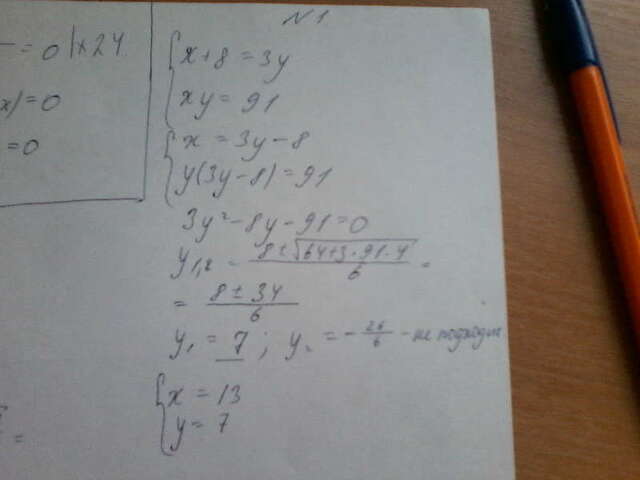 N1
— = 0 | × 24
x) = 0
= 0
{ x + 8 = 3y
xy = 91
{ x = 3y - 8
y(3y - 8) = 91
3y² - 8y - 91 = 0
y₁,₂ = (8 ± √(64 + 3 · 91 · 4)) / 6 =
= (8 ± 34) / 6
y₁ = 7 ; y₂ = - 26/6 - не подходит
{ x = 13
y = 7
=